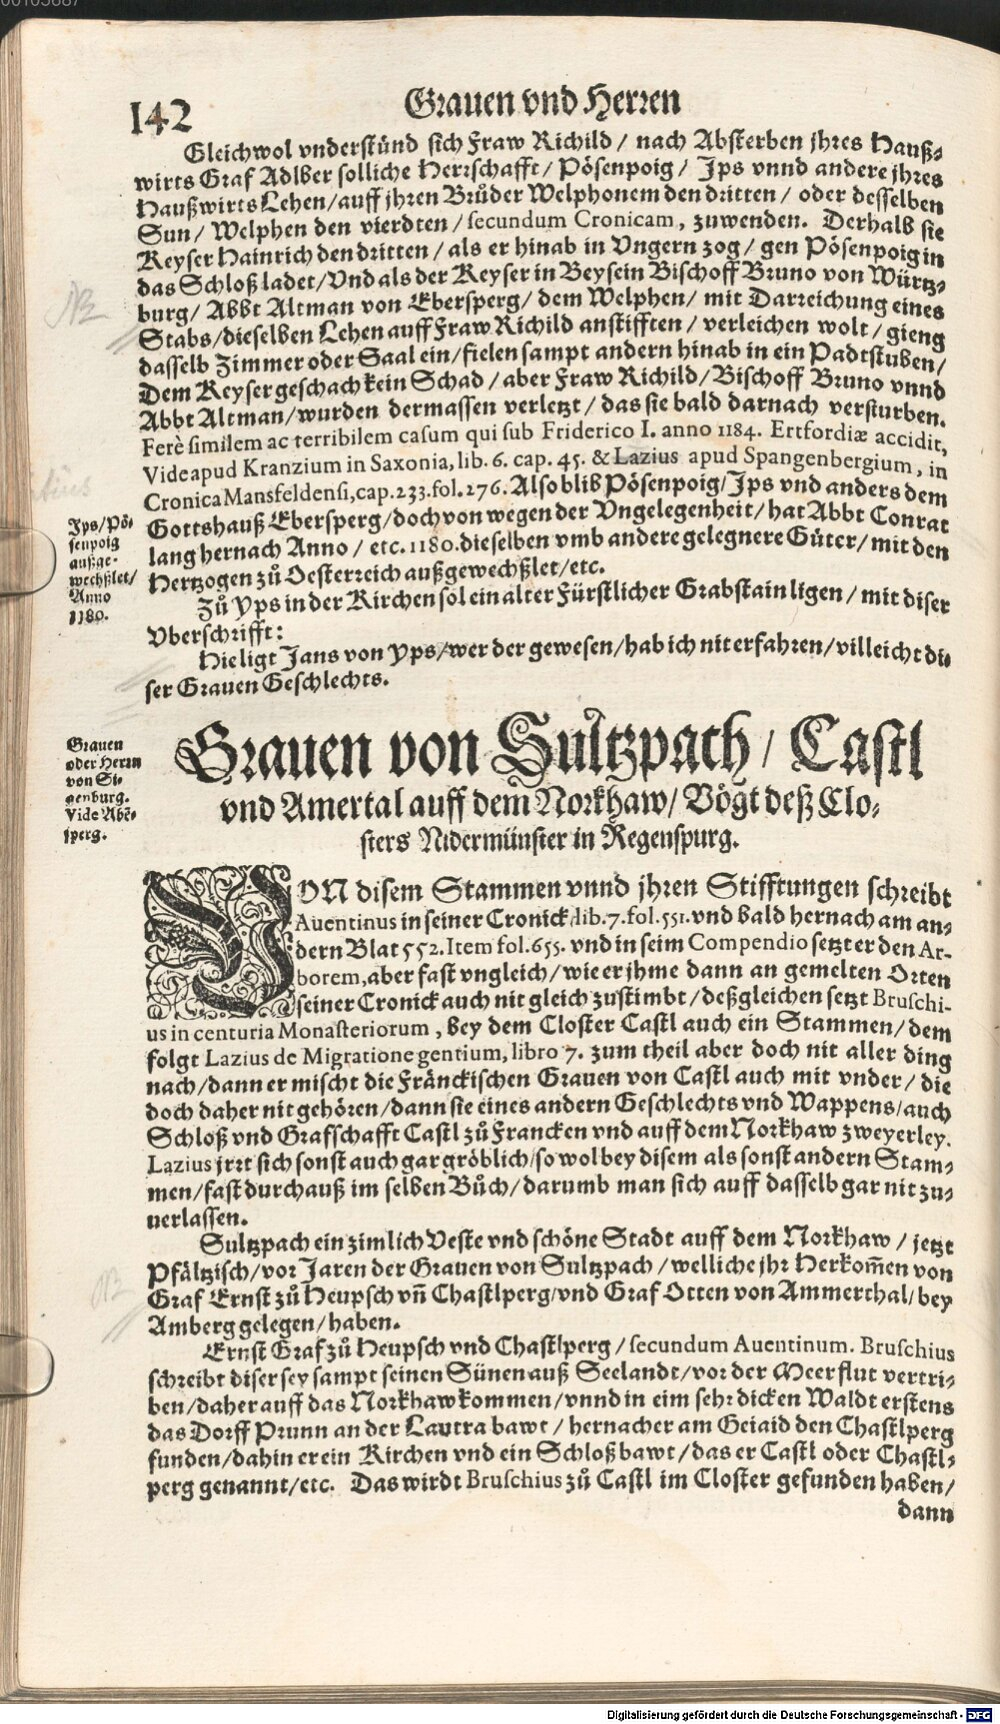 00105687
142
Grauen vnd Herren
Gleichwol vnderstünd sich Fraw Richild / nach Absterben jhres Hauß-
wirts Graf Adlber solliche Herrschafft / Pösenpoig / Jps vnnd andere jhres
Haußwirts Lehen / auff jhren Brůder Welphonem den dritten / oder desselben
Sun / Welphen den vierdten / secundum Cronicam, zuwenden. Derhalb sie
Keyser Hainrich den dritten / als er hinab in Vngern zog / gen Pösenpoig in
das Schloß ladet / Vnd als der Keyser in Beysein Bischoff Bruno von Würtz-
burg / Abbt Altman von Ebersperg / dem Welphen / mit Darreichung eines
Stabs / dieselben Lehen auff Fraw Richild anstifften / verleichen wolt / gieng
dasselb Zimmer oder Saal ein / fielen sampt andern hinab in ein Padtstuben /
Dem Keyser geschach kein Schad / aber Fraw Richild / Bischoff Bruno vnnd
Abbt Altman / wurden dermassen verletzt / das sie bald darnach versturben.
Ferè similem ac terribilem casum qui sub Friderico I. anno 1184. Ertfordiæ accidit,
Vide apud Kranzium in Saxonia, lib. 6. cap. 45. & Lazius apud Spangenbergium, in
Cronica Mansfeldensi, cap. 233. fol. 276. Also blib Pösenpoig / Jps vnd anders dem
Gottshauß Ebersperg / doch von wegen der Vngelegenheit / hat Abbt Conrat
lang hernach Anno / etc. 1180. dieselben vmb andere gelegnere Güter / mit den
Hertzogen zů Oesterreich außgewechßlet / etc.
Jps / Pö-
senpoig
außge-
wechßlet /
Anno
1180.
Zů Yps in der Kirchen sol ein alter Fürstlicher Grabstain ligen / mit diser
Vberschrifft:
Hie ligt Jans von Yps / wer der gewesen / hab ich nit erfahren / villeicht di-
ser Grauen Geschlechts.
Grauen von Sultzpach / Castl
vnd Amertal auff dem Norkhaw / Vögt deß Clo-
sters Nidermünster in Regenspurg.
Grauen
oder Herrn
von Si-
genburg.
Vide Abē-
sperg.
VON disem Stammen vnnd jhren Stifftungen schreibt
Auentinus in seiner Cronick / lib. 7. fol. 551. vnd bald hernach am an-
dern Blat 552. Item fol. 655. vnd in seim Compendio setzt er den Ar-
borem, aber fast vngleich / wie er jhme dann an gemelten Orten
seiner Cronick auch nit gleich zustimbt / deßgleichen setzt Bruschi-
us in centuria Monasteriorum, bey dem Closter Castl auch ein Stammen / dem
folgt Lazius de Migratione gentium, libro 7. zum theil aber doch nit aller ding
nach / dann er mischt die Fränckischen Grauen von Castl auch mit vnder / die
doch daher nit gehören / dann sie eines andern Geschlechts vnd Wappens / auch
Schloß vnd Grafschafft Castl zů Francken vnd auff dem Norkhaw zweyerley.
Lazius jrrt sich sonst auch gar gröblich / so wol bey disem als sonst andern Stam-
men / fast durchauß im selben Bůch / darumb man sich auff dasselb gar nit zu-
uerlassen.
Sultzpach ein zimlich Veste vnd schöne Stadt auff dem Norkhaw / jetzt
Pfältzisch / vor Jaren der Grauen von Sultzpach / welliche jhr Herkom̄en von
Graf Ernst zů Heupsch vn̄ Chastlperg / vnd Graf Otten von Ammerthal / bey
Amberg gelegen / haben.
Ernst Graf zů Heupsch vnd Chastlperg / secundum Auentinum. Bruschius
schreibt diser sey sampt seinen Sünen auß Seelandt / vor der Meerflut vertri-
ben / daher auff das Norkhaw kommen / vnnd in eim sehr dicken Waldt erstens
das Dorff Prunn an der Lautra bawt / hernacher am Geiaid den Chastlperg
funden / dahin er ein Kirchen vnd ein Schloß bawt / das er Castl oder Chastl-
perg genannt / etc. Das wirdt Bruschius zů Castl im Closter gefunden haben /
dann
Digitalisierung gefördert durch die Deutsche Forschungsgemeinschaft - DFG